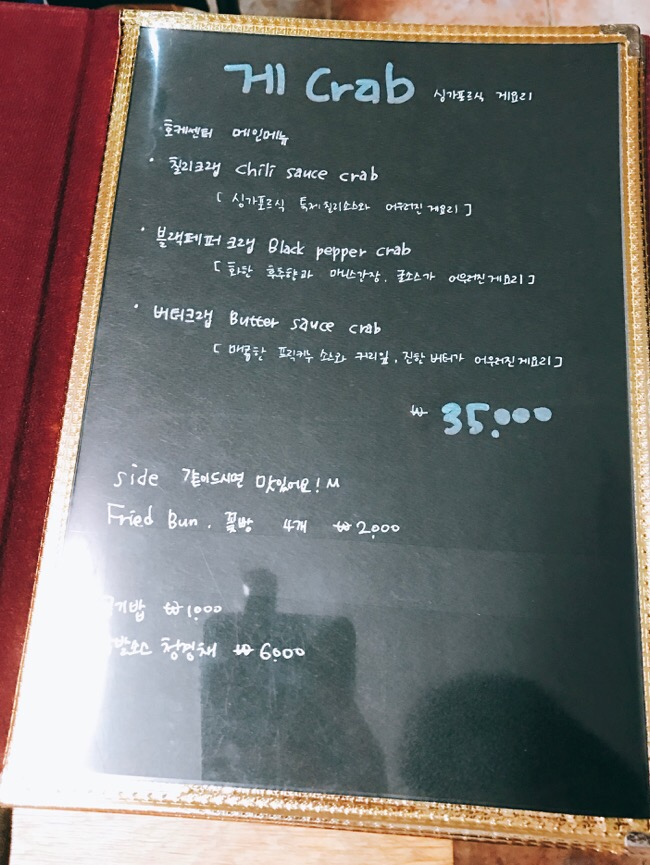 게 Crab 싱가포르식 게요리
호커센터 메인메뉴
· 칠리크랩 Chili sauce crab
[ 싱가포르식 특제 칠리소스와 어우러진 게요리 ]
· 블랙페퍼 크랩 Black pepper crab
[ 화한 후추향과 마니스간장, 굴소스가 어우러진 게요리 ]
· 버터크랩 Butter sauce crab
[ 매콤한 프릭키누 소스와 커리잎, 진한 버터가 어우러진 게요리 ]
₩ 35.000
side 같이드시면 맛있어요!
Fried Bun. 꽃빵 4개 ₩2.000
공기밥 ₩1.000
소스 청경채 ₩6.000